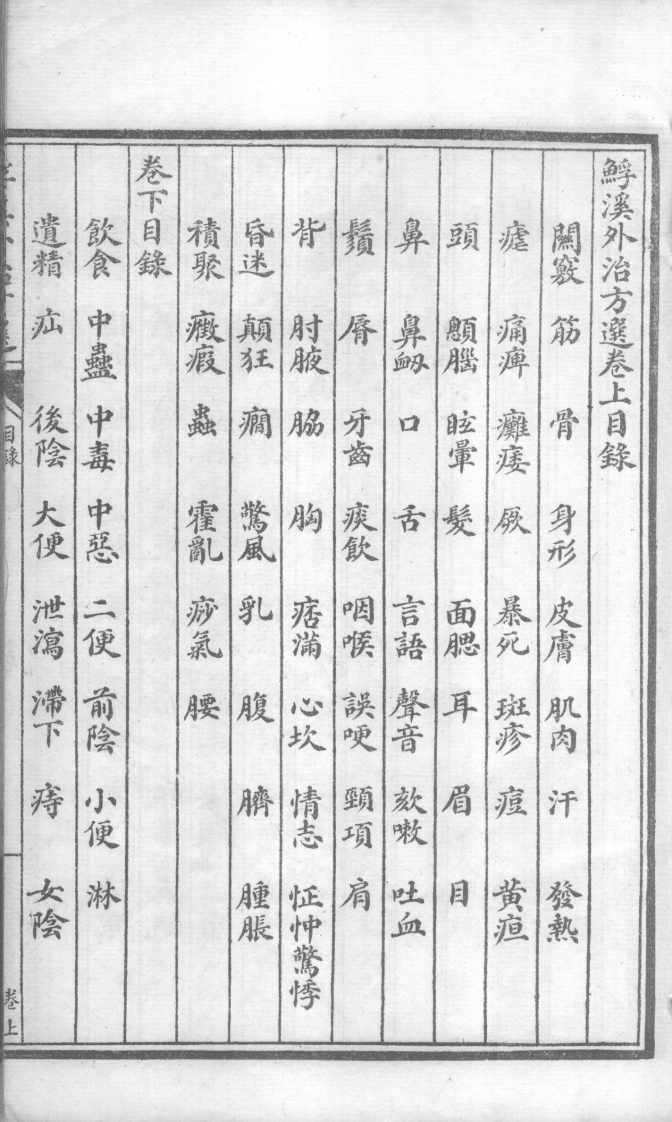 鯚溪外治方選卷上目錄
關竅 筋 骨 身形 皮膚 肌肉 汗 發熱
瘧 痛痺 癱痿 厥 暴死 斑疹 痘 黃疸
頭 顋腦 眩暈 髮 面腮 耳 眉 目
鼻 鼻衂 口 舌 言語 聲音 欬嗽 吐血
鬚 脣 牙齒 痰飲 咽喉 誤哽 頸項 肩
背 肘腋 脇 胸 痞滿 心坎 情志 怔忡驚悸
昏迷 顛狂 癇 驚風 乳 腹 臍 腫脹
積聚 癥瘕 蟲 霍亂 痧氣 腰
卷下目錄
飲食 中蠱 中毒 中惡 二便 前陰 小便 淋
遺精 疝 後陰 大便 泄瀉 滯下 痔 女陰
目錄
卷上